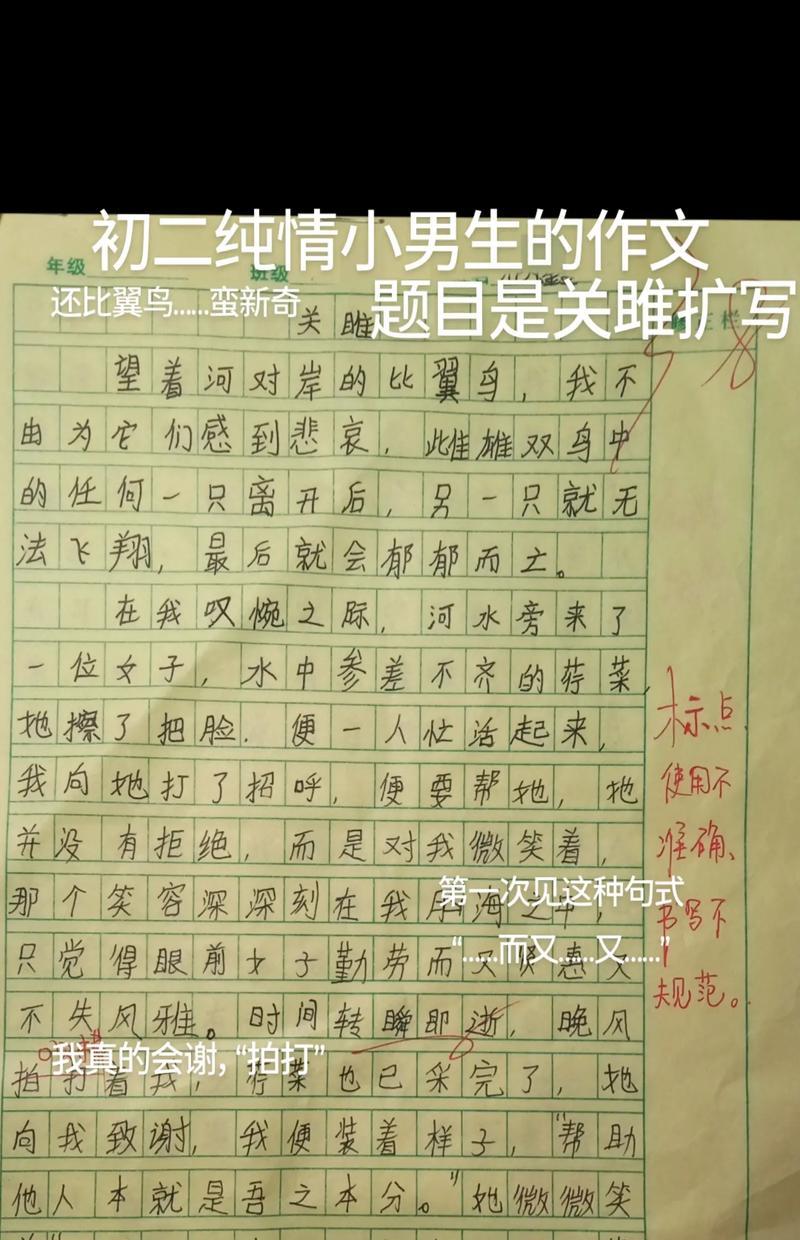 初二纯情小男生的作文
年级
班级
还比翼鸟……蛮新奇
题目是关雎扩写
关雎
望着河对岸的比翼鸟，我不
由为它们感到悲哀，雌雄双鸟中
的任何一只离开后，另一只就无
法飞翔，最后就会郁郁而亡。
在我叹惋之际，河水旁来了
一位女子，水中参差不齐的荇菜，
她擦了把脸．便一人忙活起来，
我向她打了招呼，便要帮她，她
并没有拒绝，而是对我微笑着，
那个笑容深深刻在我
海之中，
第一次见这种句式
只觉得眼前女子勤劳而又
惠又
“……而又……又……”
不失风雅。时间转瞬即逝，晚风
我真的会谢，“拍打”
拍打着我，荇菜也已采完了，她
向我致谢，我便装着样子，“帮助
他人本就是吾之本分。”她微微笑
标点
使用不
准确、
书写不
规范。